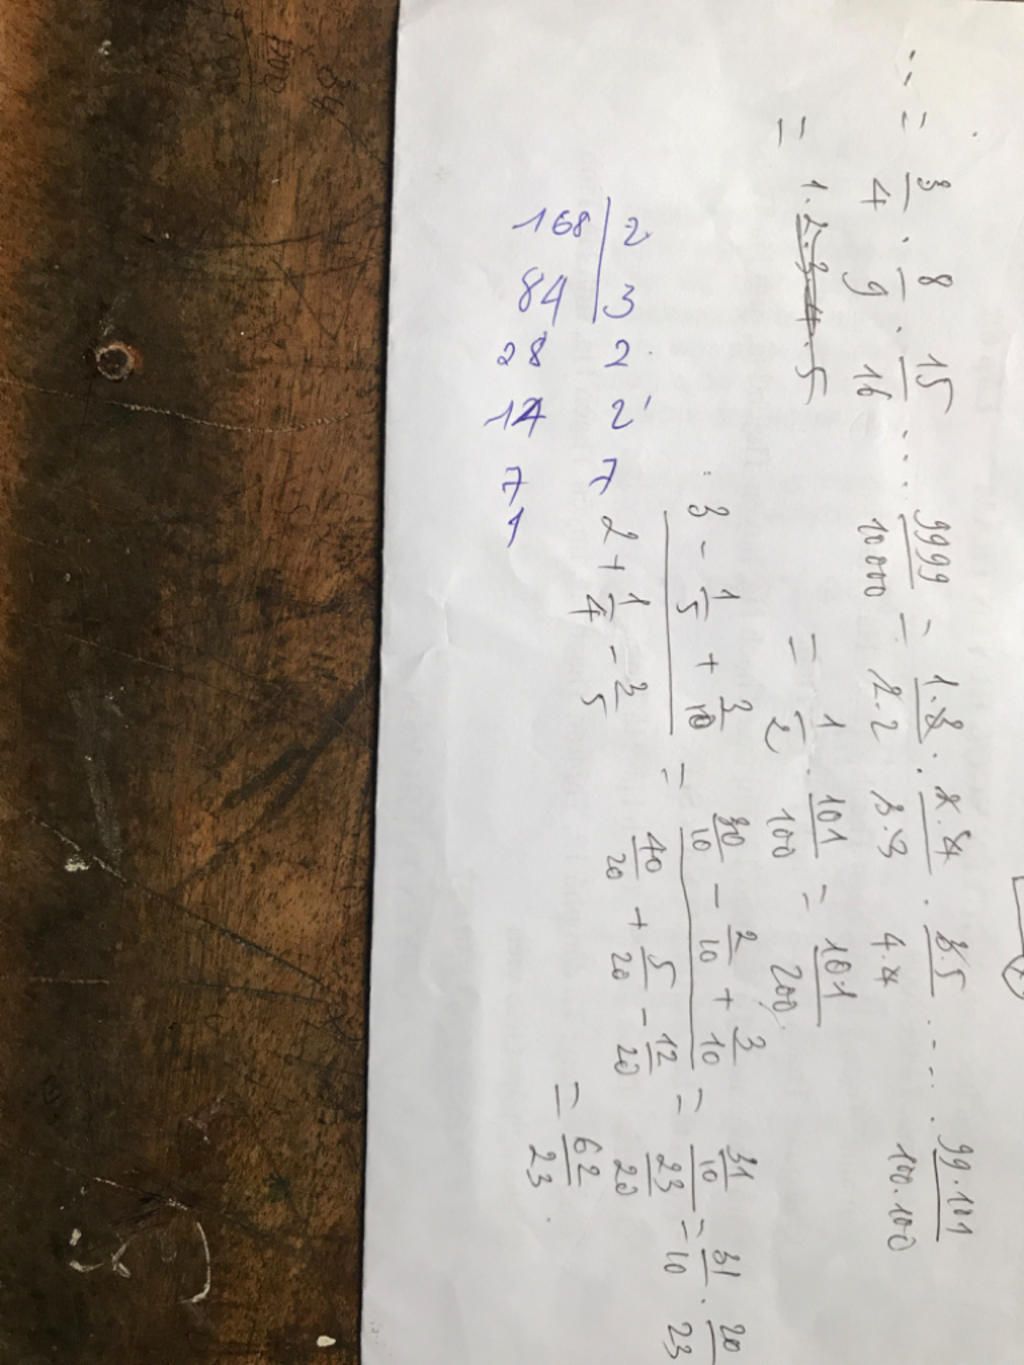 = 3/4 . 8/9 . 15/16 ... 9999/10000 = 1.3/2.2 . 2.4/3.3 . 3.5/4.4 .... 99.101/100.100
= 1.2.3.4.5
= 1/2 . 101/100 = 101/200.
(3 - 1/5 + 3/10)/(2 + 1/4 - 3/5) = (30/10 - 2/10 + 3/10)/(40/20 + 5/20 - 12/20) = (31/10)/(23/20) = 31/10 . 20/23
= 62/23.
168 | 2
84 | 3
28 2
14 2
7 7
1